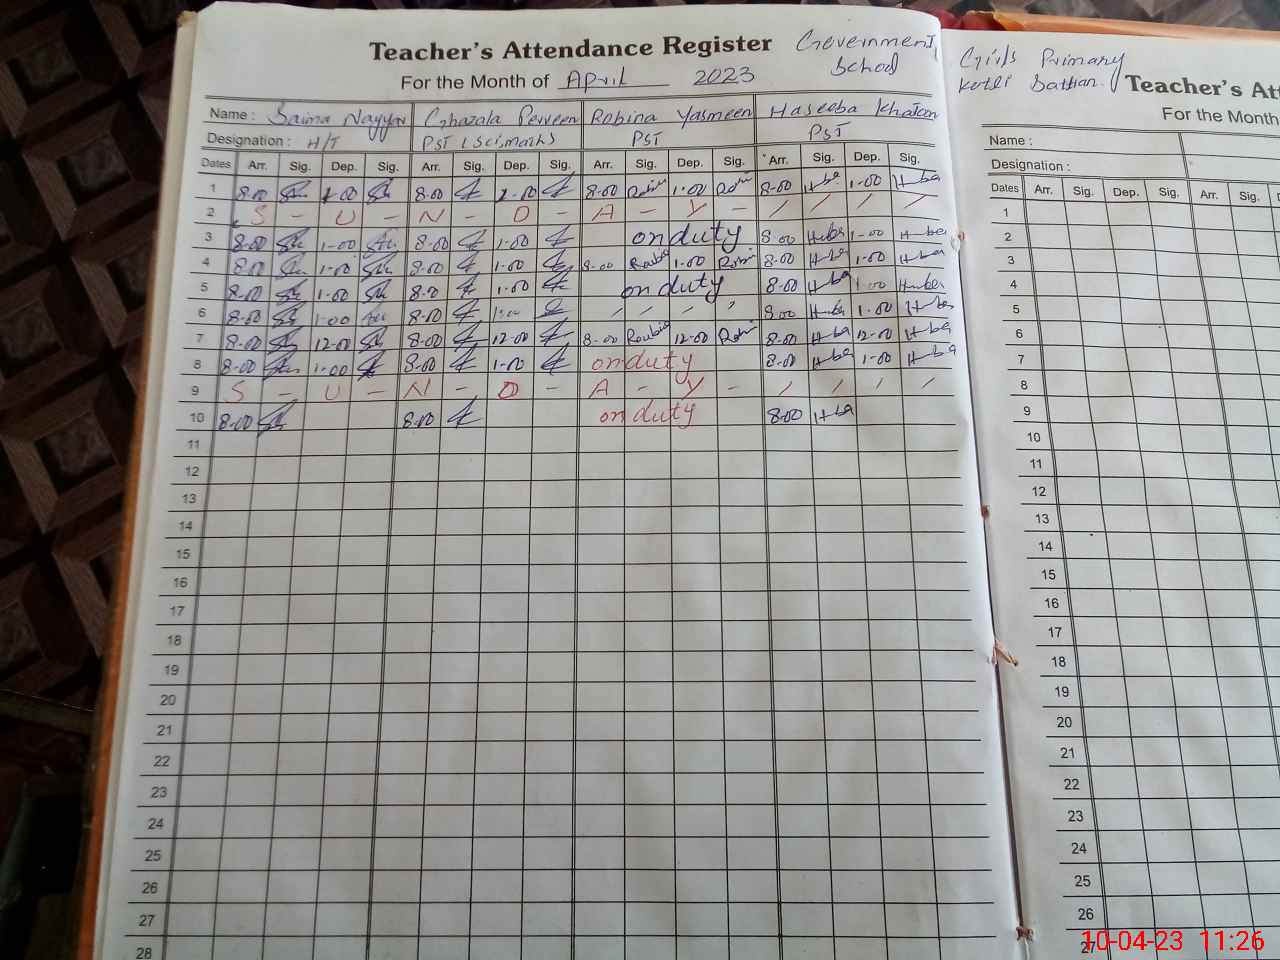 Teacher's Attendance Register Government
For the Month of April 2023 School
Name : Saima Nayyar Ghazala Perveen Robina Yasmeen Haseeba Khatoon
Designation : H/T PST (Sci, math) PST PST
Dates Arr. Sig. Dep. Sig. Arr. Sig. Dep. Sig. Arr. Sig. Dep. Sig. Arr. Sig. Dep. Sig.
1 8.00 1.00 8.00 1.00 8.00 1.00 8.00 H-ba 1.00 H-ba
2 S - U - N - D - A - Y - / / / /
3 8.00 1-00 8.00 1.00 on duty 8.00 H-ba 1-00 H-ba
4 8.00 1.00 8.00 1.00 8-00 1.00 8.00 H-ba 1.00 H-ba
5 8.00 1.00 8.0 1.00 on duty 8.00 H-ba 1.00 H-ba
6 8.00 1.00 8.00 1.00 / / / / 8.00 H-ba 1.00 H-ba
7 8.00 12.00 8.00 12.00 8-00 12.00 8.00 H-ba 12-00 H-ba
8 8.00 1.00 8.00 1.00 on duty 8.00 H-ba 1.00 H-ba
9 S - U - N - D - A - Y - / / / /
10 8.00 8.00 on duty 8.00 H-ba
11
12
13
14
15
16
17
18
19
20
21
22
23
24
25
26
27
28
Girls Primary
Kotli
Teacher's At
For the Month
Name :
Designation :
Dates Arr. Sig. Dep. Sig. Arr. Sig.
1
2
3
4
5
6
7
8
9
10
11
12
13
14
15
16
17
18
19
20
21
22
23
24
25
26
27
10-04-23 11:26